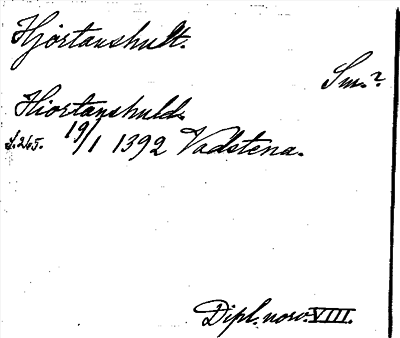 Hjortanshult.
Sm.?
Hiortanshuld.
s.265. 19/1 1392 Vadstena.
Dipl. norv. VIII.